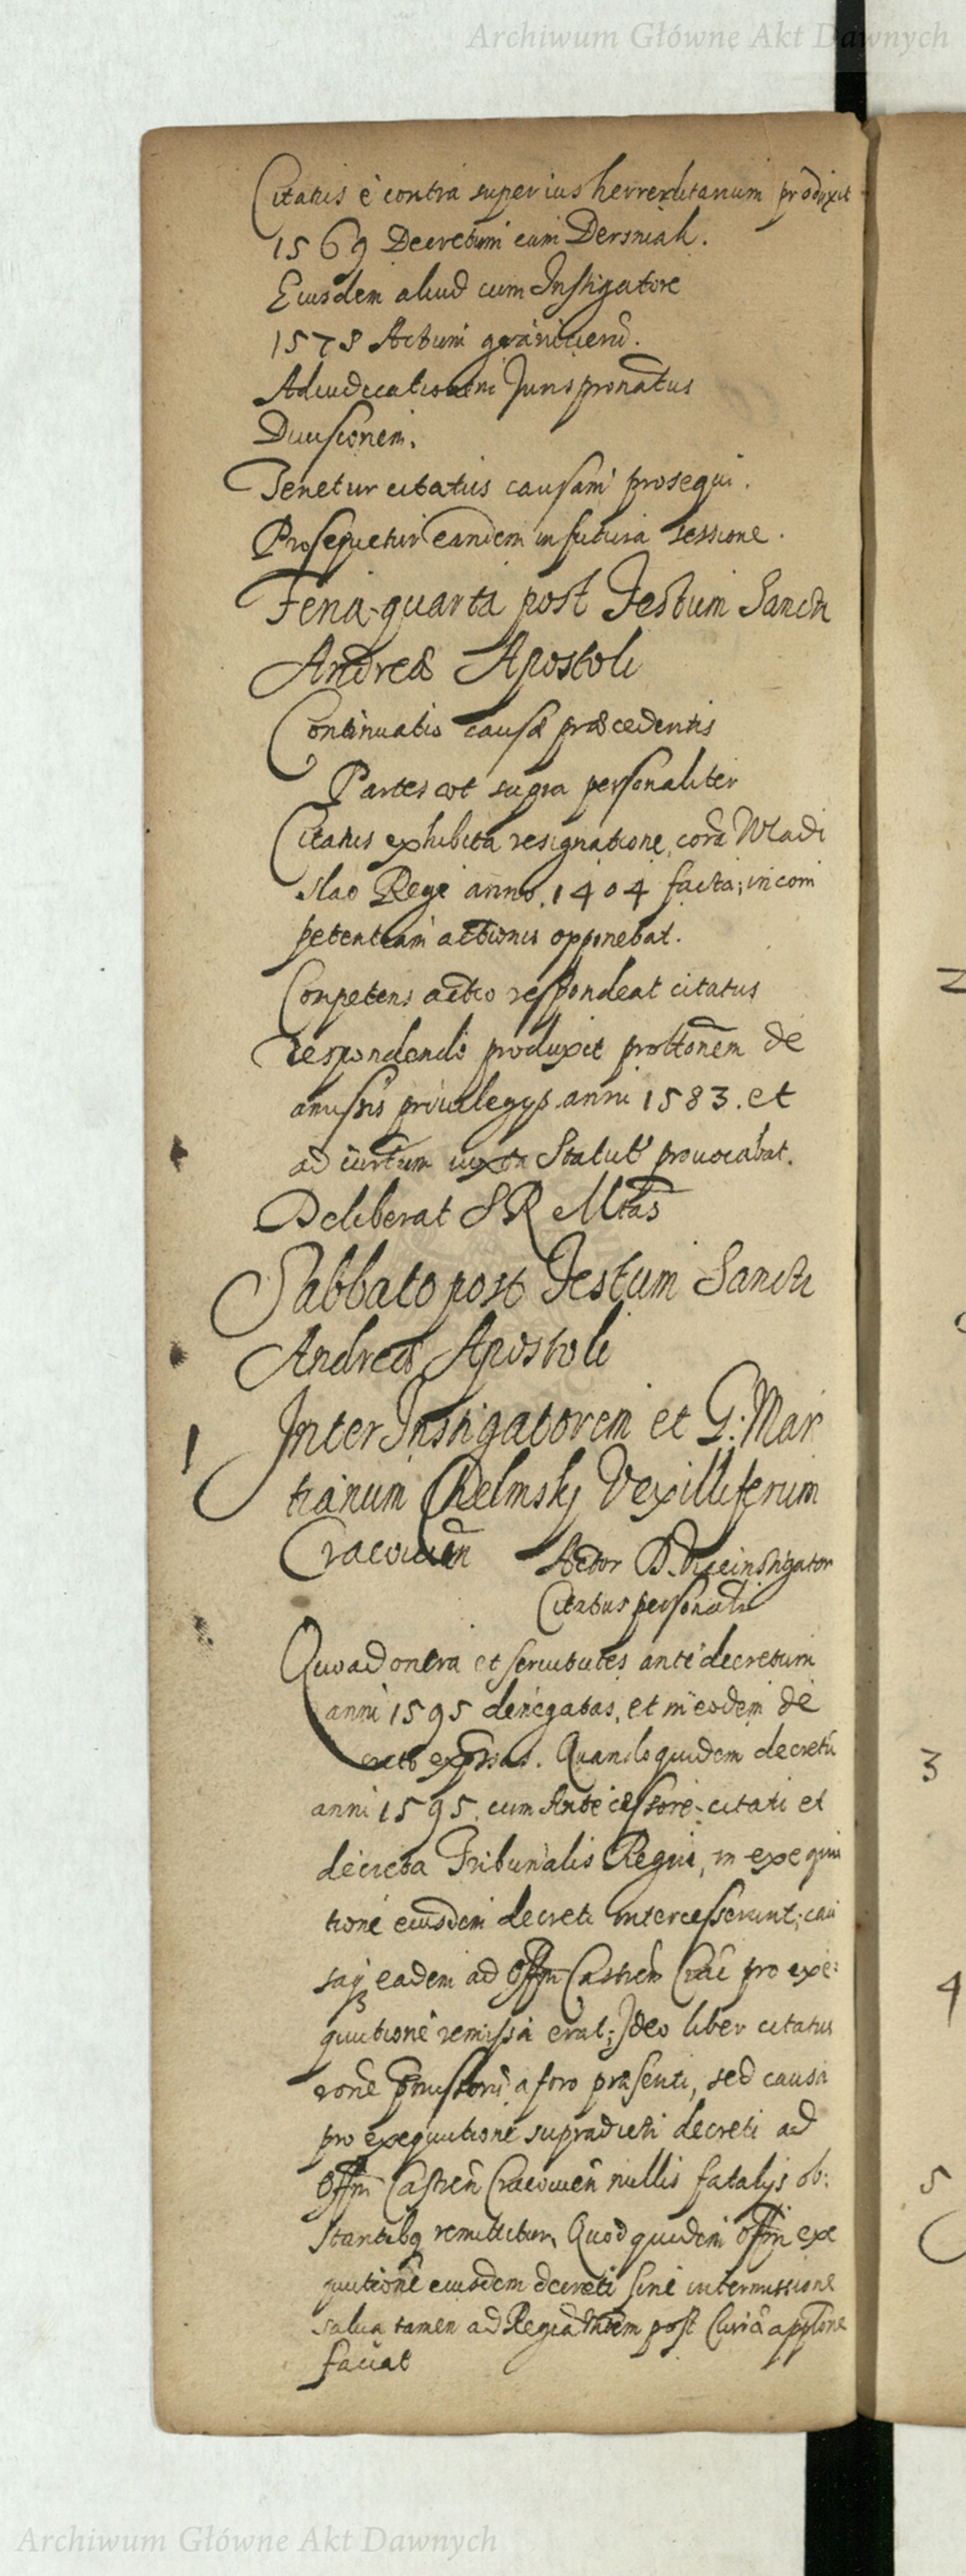 Archiwum Główne Akt Dawnych
Citatus è contra superius herreditarium produxit
1569 Decretum cum Dersniak.
Eiusdem aliud cum Instigatore
1578 Actum graniciem̃.
Adiudicationem Juris pronatus
Diuisionem.
Tenetur citatus causam prosequi.
Prosequetur eandem in futura sessione.
Feria quarta post Festum Sancti
Andreæ Apostoli
Continuatio causæ præcedentis
Partes vt supra personaliter
Citatus exhibita resignatione, corã Wladi
slao Rege anno. 1404 facta; incom
petentiam actionis opponebat.
Conpetens actio respondeat citatus
respondendo produxit prottonem de
amissis priuilegys anni 1583. et
ad iuxta Statut prouocabat.
Deliberat S R Mtas
Sabbato post Festum Sancti
Andreæ Apostoli
Inter Instigatorem et G. Mar
tianum Chelmsky Vexilliferum
Cracouien
Actor D. Viceinstigator
Citatus personalr
Quoad onera et seruitutes ante decretum
anni 1595 denegatas, et in eodem de
creto exprssas. Quandoquidem decretũ
anni 1595. cum Antecessore citati et
decreta Tribunalis Regni, in exequu
tione eiusdem decreti intercesserunt; cau
saq eadem ad Offm Castren Crac pro exe:
quutione remissa erat; Ideo liber citatus
rone pmissorũ a foro præsenti, sed causa
pro exequutione supradicti decreti ad
Offm Castren Cracouien nullis fatalys ob:
stantibq remittitur, Quod quidem offm exe
quutionẽ eiusdem decreti sine intermissione
salua tamen ad Regiã Mttem post Curiã appltone
faciat
2
3
4
5
Archiwum Główne Akt Dawnych